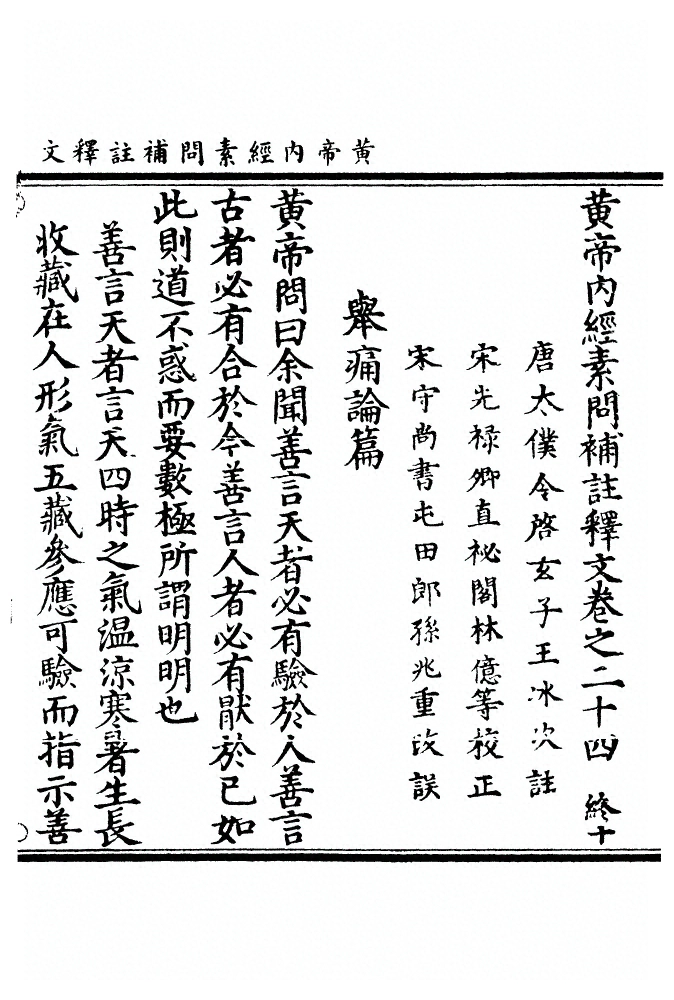 黄帝內經素問補註釋文
黄帝內經素問補註釋文卷之二十四 終十
唐太僕令啓玄子王冰次註
宋光祿卿直祕閣林億等校正
宋守尚書屯田郎孫兆重改誤
舉痛論篇
黄帝問曰余聞善言天者必有驗於人善言
古者必有合於今善言人者必有厭於已如
此則道不惑而要數極所謂明明也
善言天者言天四時之氣温涼寒暑生長
收藏在人形氣五藏參應可驗而指示善